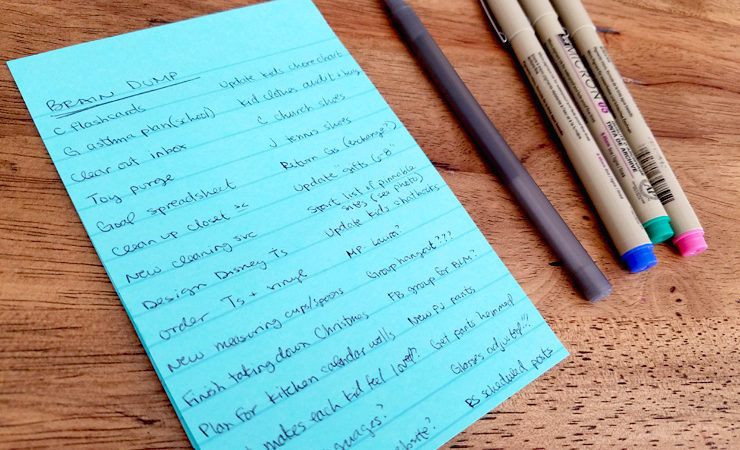 BRAIN DUMP
C flashcards
G asthma plan (school)
Clear out inbox
Toy purge
Goal spreadsheet
Clean up closet
New cleaning svc
Design Disney Ts
Order Ts + vinyl
New measuring cups/spoons
Finish taking down Christmas
Plan for kitchen calendar walls
makes each kid feel loved?
Update kids chore chart
Kid clothes audit +
C church shoes
J tennis shoes
Return Gs (exchange?)
Update "gifts 6-8"
Start list of pinnable
sites (see photo)
Update kids
MP
Group hangout???
FB group for BLM?
New PJ pants
Get pants hemmed!
Glasses adjusted!!!
BS scheduled posts
MICRON 05